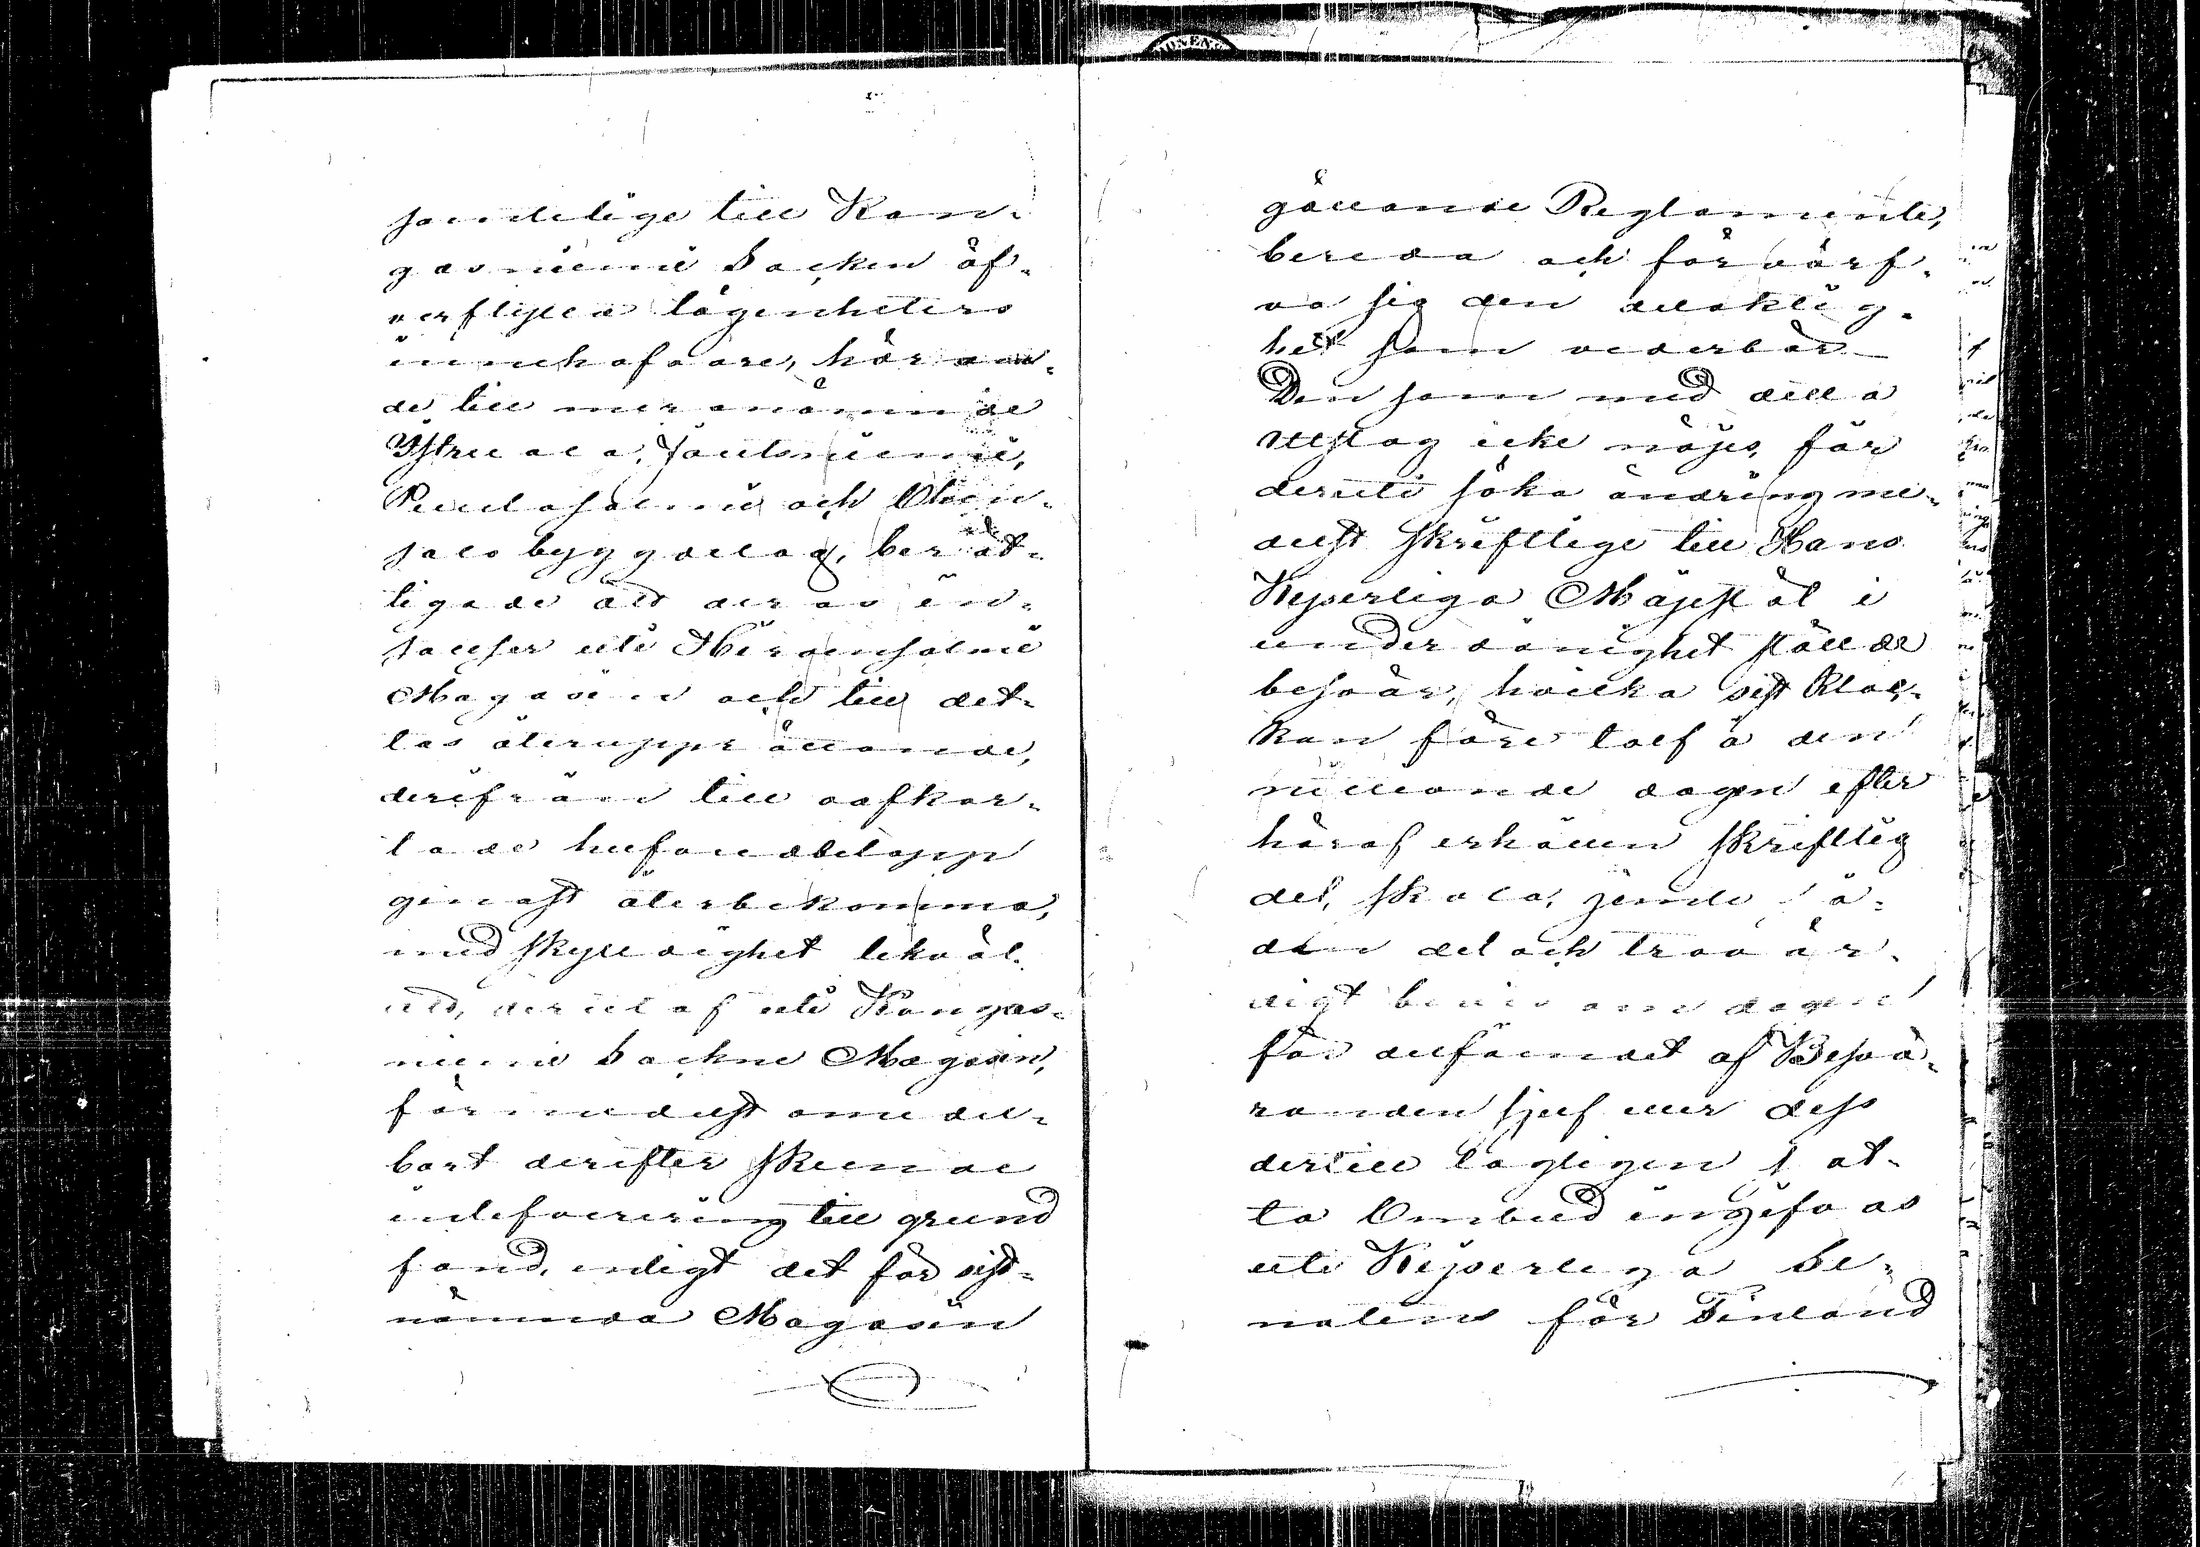 samtelige till Kan-
gasniemi Socken öf-
verflyttade lägenheters
innehafvare, höran-
de till meranämnde
Istruala, Joutsniemi,
och
byggdelag, berät-
tigade att deras in-
satser uti Hirvensalmi
Magasin och till det-
tas återupprättande,
derifrån till
lade hufvudbelopp
genast återbekomma,
med skyldighet likväl.
att, deraf uti Kangas-
niemi Sockne Magasin,
förmedelst omedel-
bart derefter skeende
inlefverering till grund
fond, enligt det för sist-
nämnda Magasin
gällande Reglemente,
bereda och förvärf-
va sig den delaktig-
het som vederbör.
Den som med detta
utslag icke nöjes, får
deruti söka ändring me-
delst skriftlige till Hans
Kejserliga Majestät i
underdånighet ställde
besvär, hvilka sist Kloc-
kan före tolf å den
dagen efter
häraf erhållen skriftlig
del, skola, jemte så-
dan del och trovär-
digt bevis om dagen
för delfåendet af Besvä-
randen sjelf eller dess
dertill lagligen  at-
ta Ombud ingifvas
uti Kejserliga Se-
naten för Finland